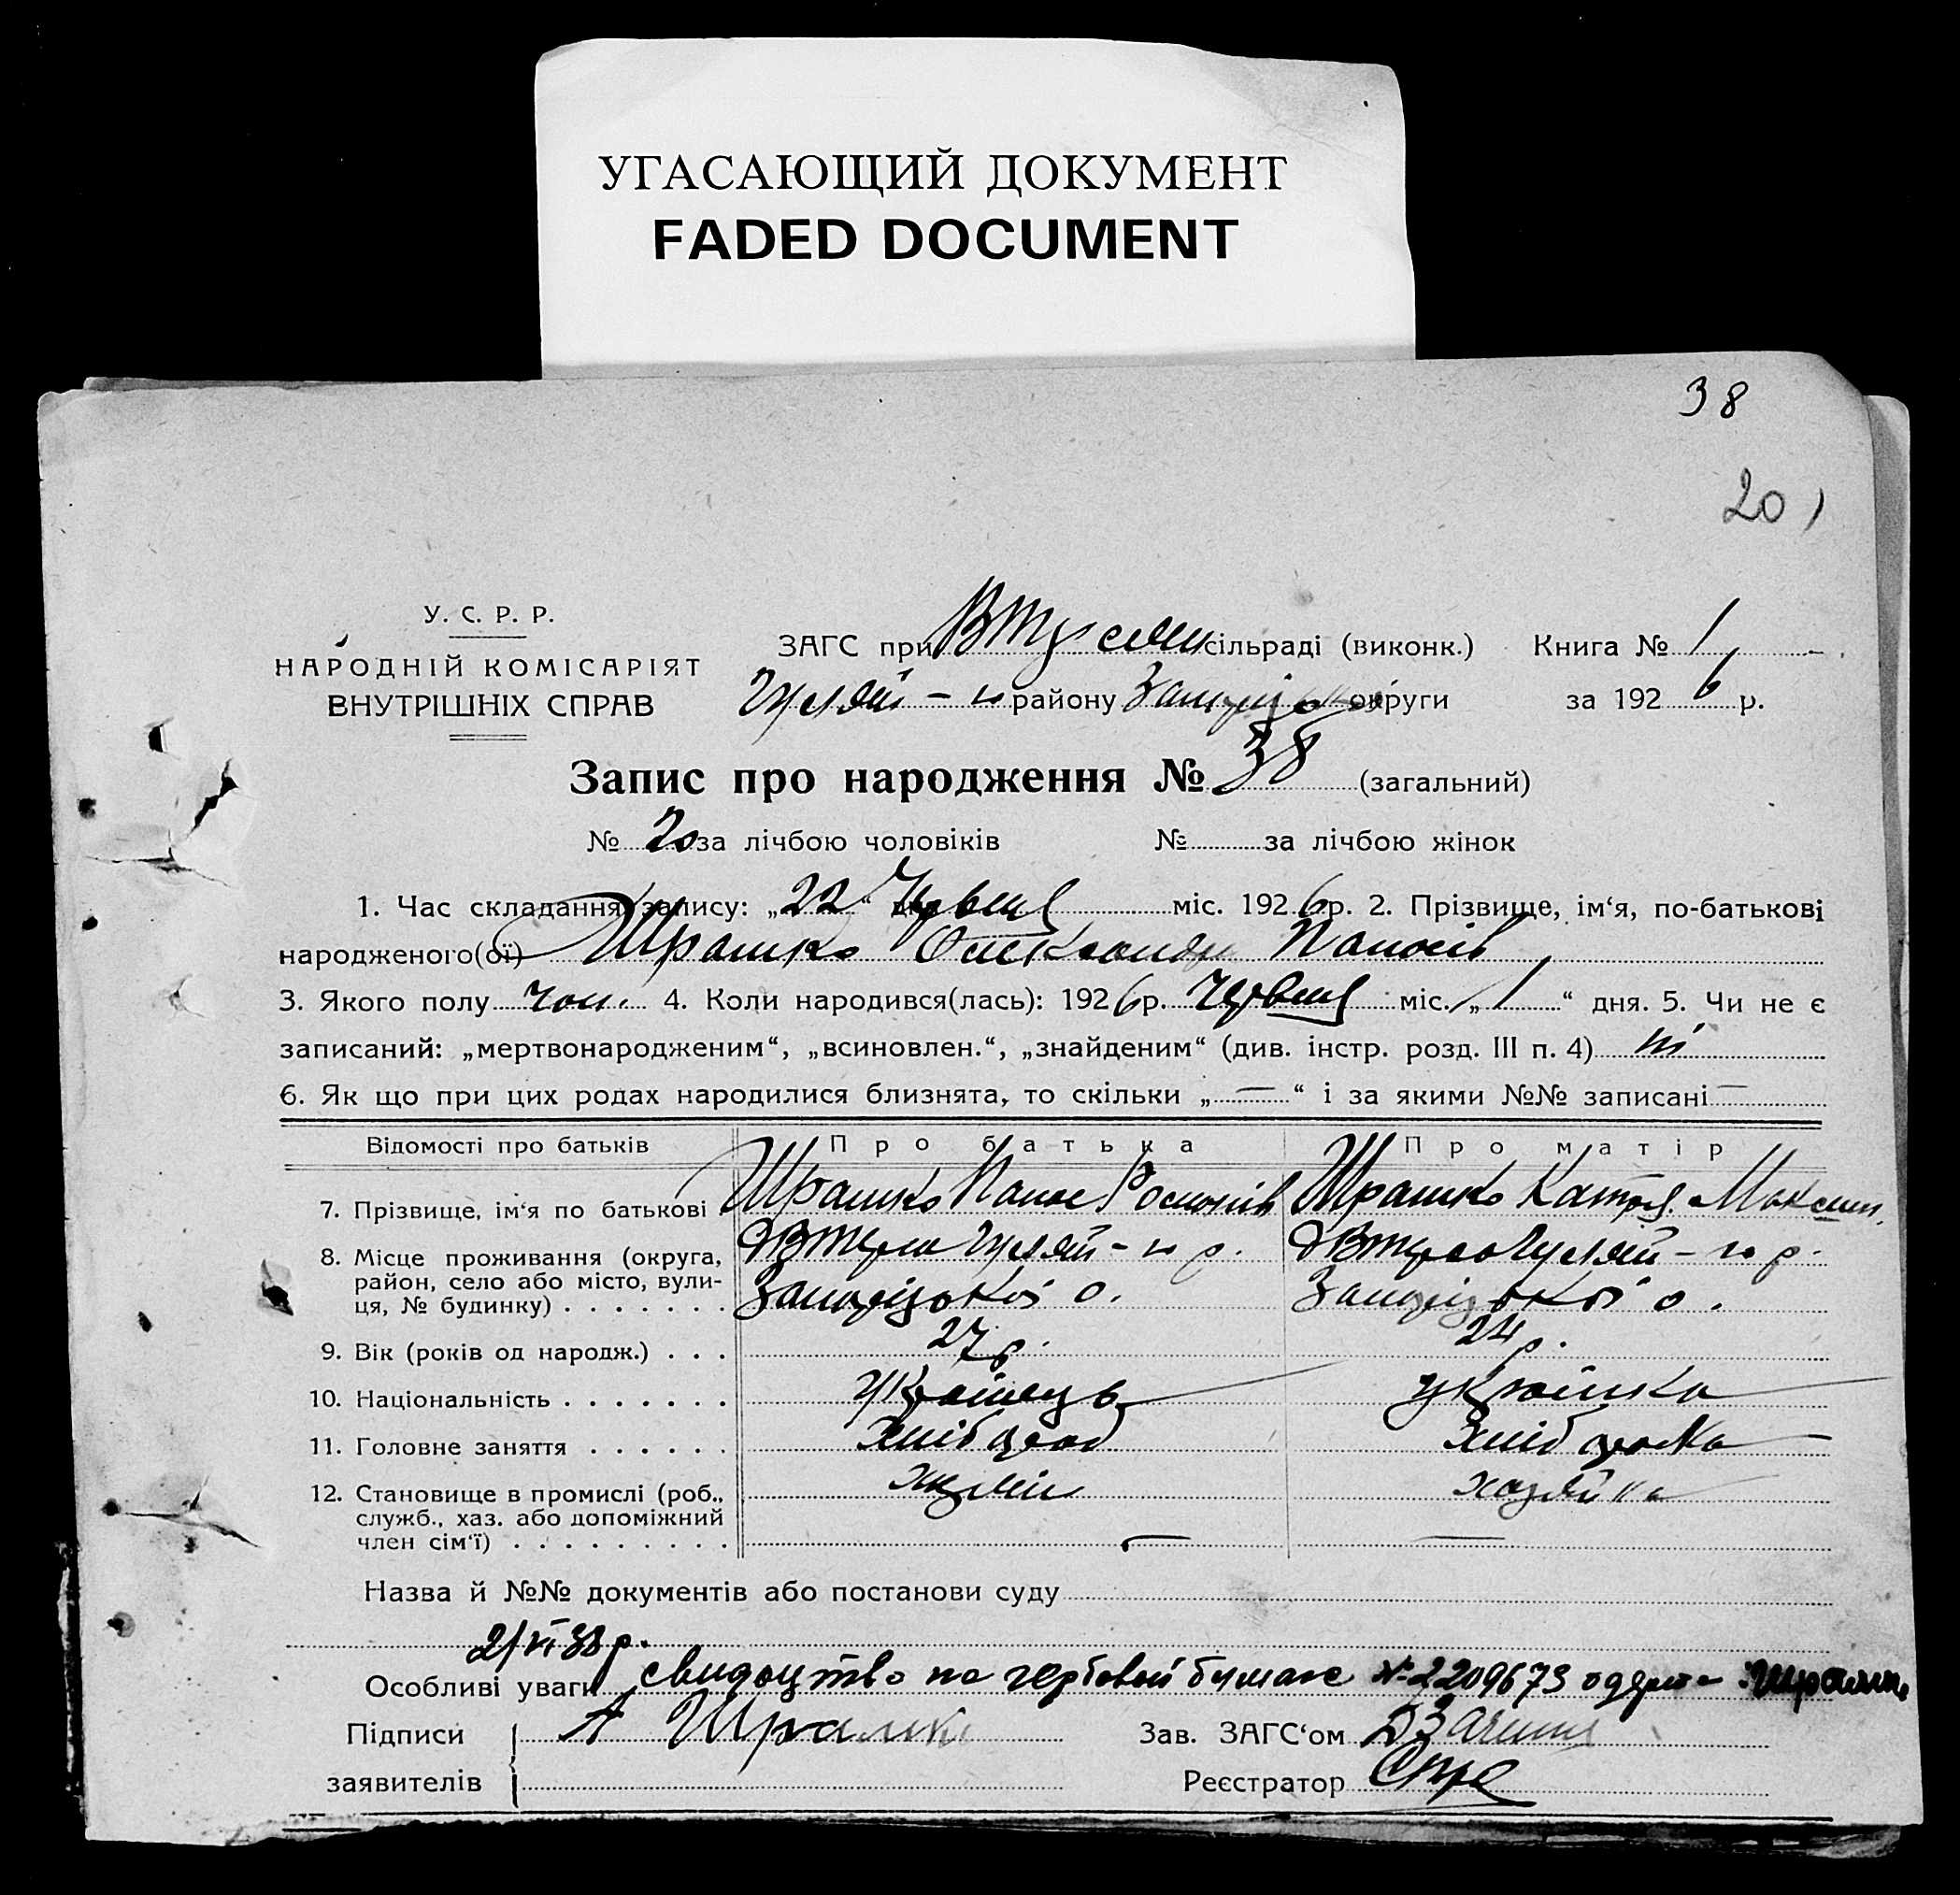 УГАСАЮЩИЙ ДОКУМЕНТ
FADED DOCUMENT
38
20
У. С. Р. Р.
НАРОДНІЙ КОМІСАРІЯТ
ВНУТРІШНІХ СПРАВ
ЗАГС при сільраді (виконк.) Книга № 1
Гуляй - району округи за 1926 р.
Запис про народження № 38 (загальний)
№ 20 за лічбою чоловіків № за лічбою жінок
1. Час складання запису: „22“ дня Червня міс. 1926 р. 2. Прізвище, ім‘я, по-батькові
народженого(ої) Шрамко Олександр Панасів
3. Якого полу чол. 4. Коли народився(лась): 1926 р. Червня міс. „1“ дня. 5. Чи не є
записаний: „мертвонародженим“, „всиновлен.“, „знайденим“ (див. інстр. розд. III п. 4) ні
6. Як що при цих родах народилися близнята, то скільки „—“ і за якими №№ записані —
Відомості про батьків Про батька Про матір
7. Прізвище, ім‘я по батькові Шрамко Панас Шрамко Катря Максим.
8. Місце проживання (округа, Гуляй - р. Гуляй - р.
район, село або місто, вули-
ця, № будинку) . . . . . . . Запорізької о. Запорізької о.
9. Вік (років од народж.) . . . 27 р. 24 р.
10. Національність . . . . . . . українець українка
11. Головне заняття . . . . . . хлібороб хліборобка
12. Становище в промислі (роб., хазяїн хазяйка
служб., хаз. або допоміжний
член сім‘ї) . . . . . . . . . — —
Назва й №№ документів або постанови суду
21/VI 33 р.
Особливі уваги свидоцтво на гербовой бумаге № 2209673 одержа Шрамко
Підписи А Шрамко Зав. ЗАГС‘ом
заявителів Реєстратор